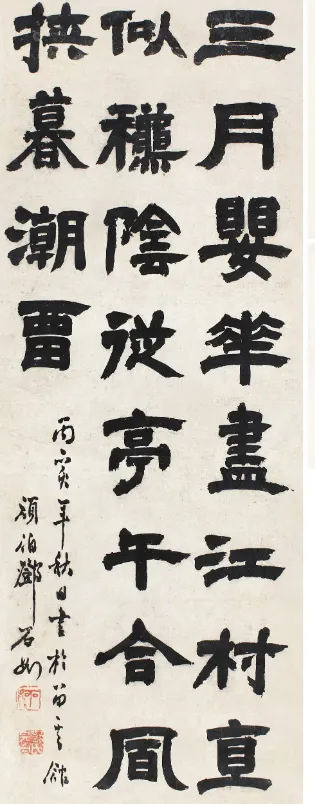 三月嬰華盡江村夏
似龝陰從亭午合風
挾暮潮畱
丙寅年秋日書於留雲館
頑伯鄧石如